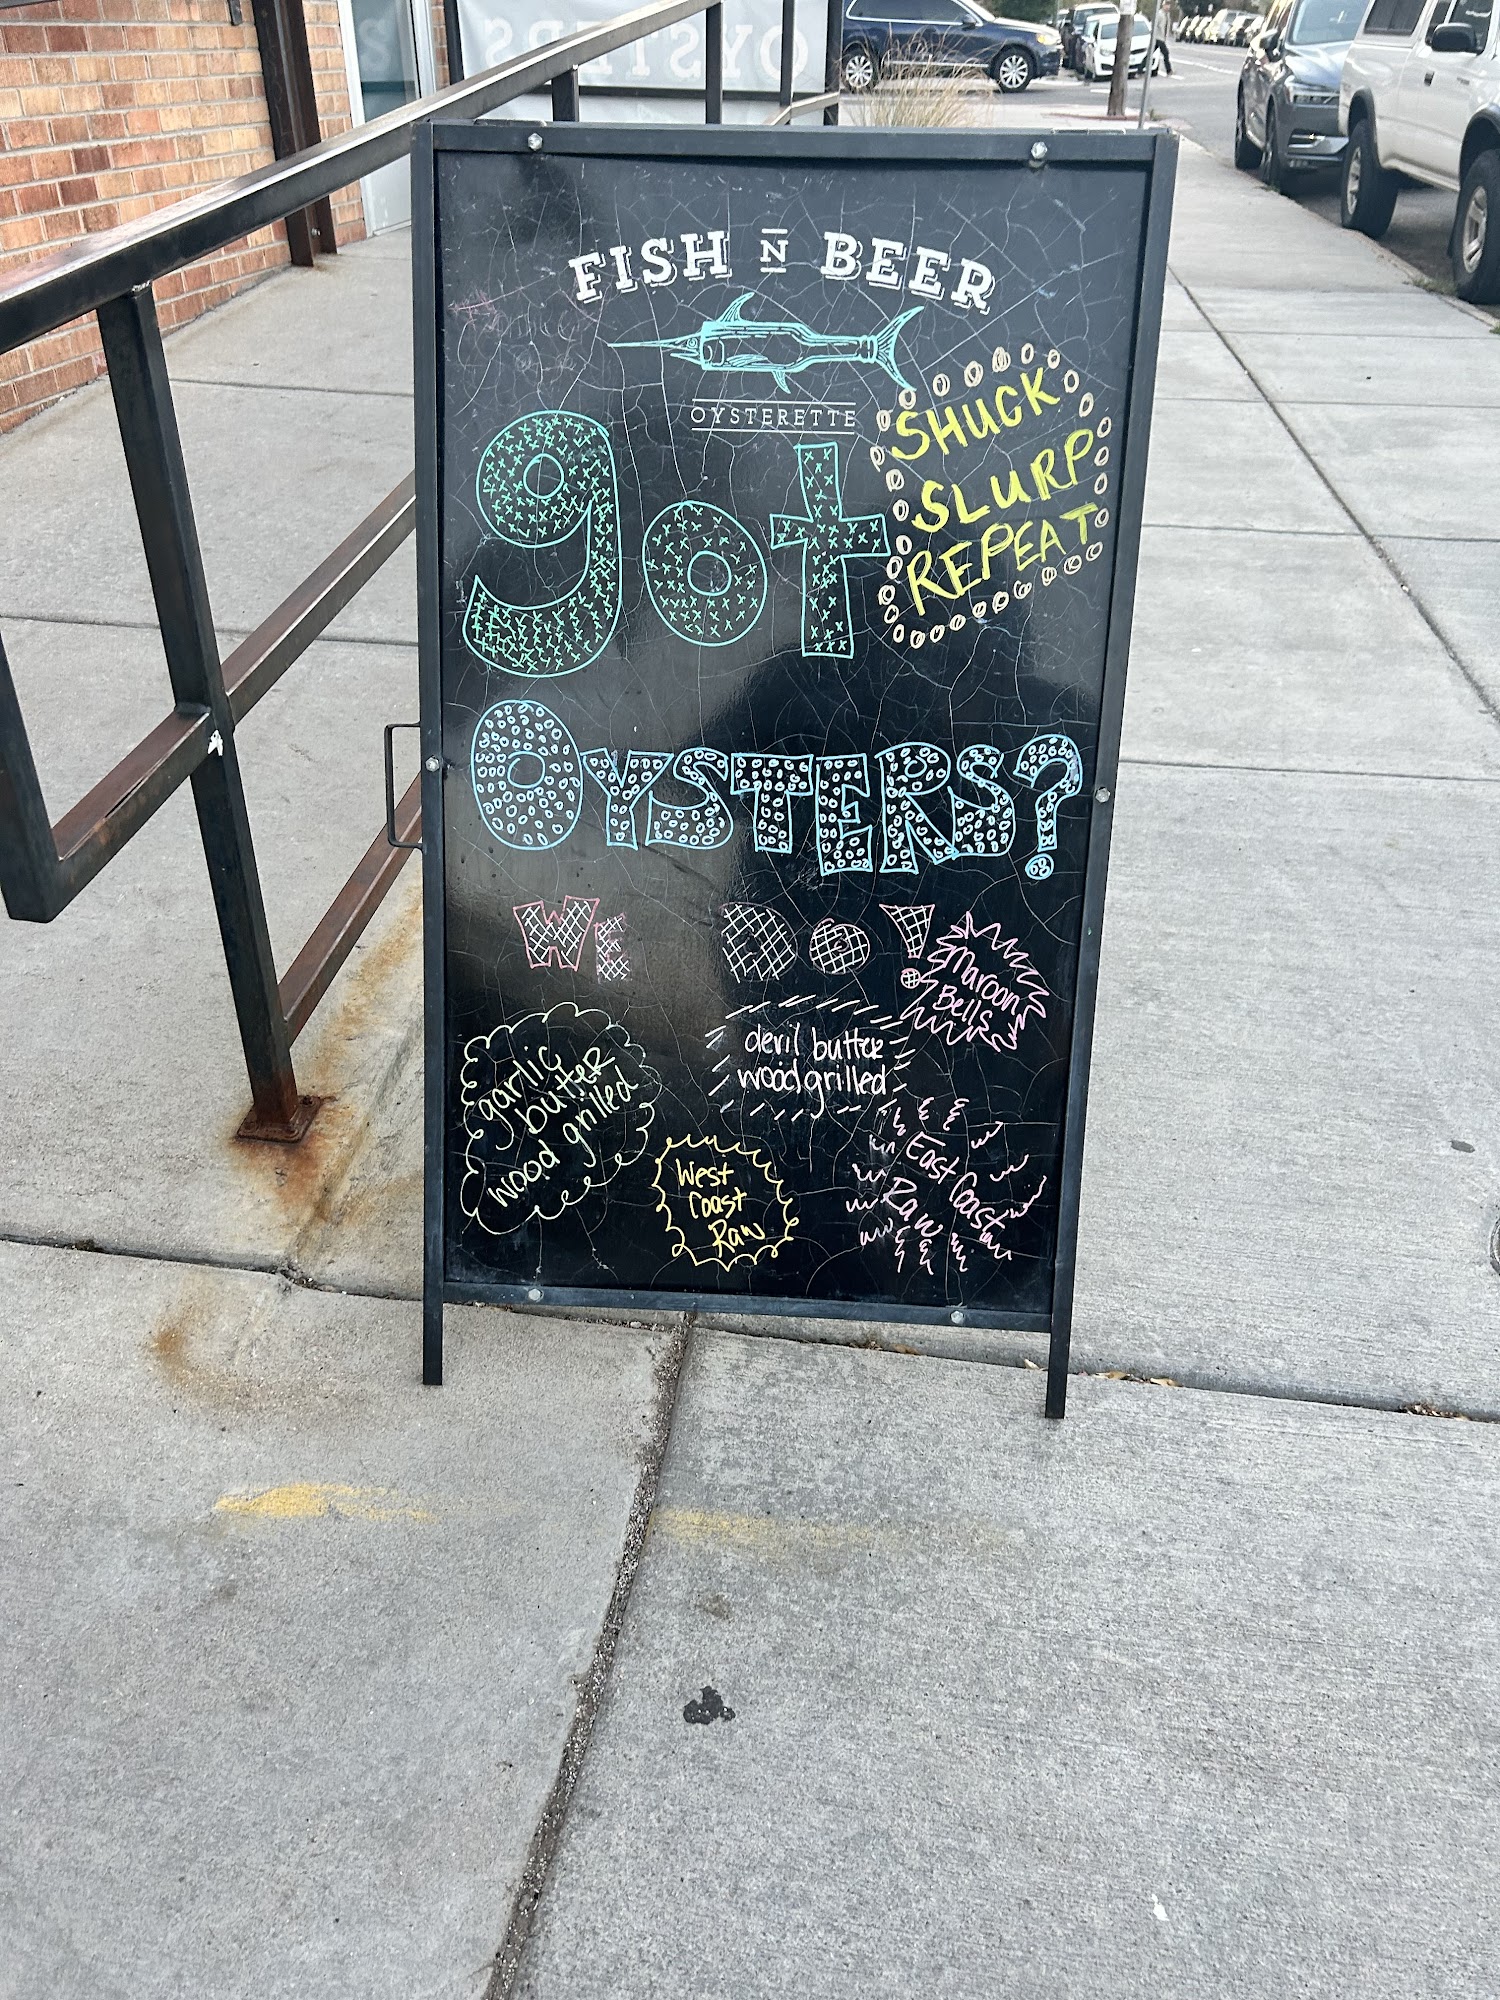 OYSTERS
FISH N BEER
OYSTERETTE
SHUCK
SLURP
REPEAT
got
OYSTERS?
WE DO!
Maroon
Bells
devil butter
wood grilled
garlic
butter
wood grilled
West
Coast
Raw
East Coast
Raw